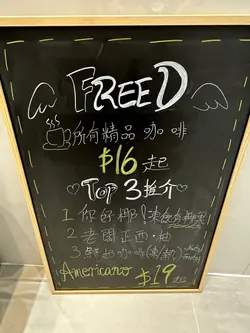 FREED
所有精品咖啡
$16起
Top 3推介
1 你好椰!
2 老闆正西·柚
3 鮮奶咖啡
Americano $19起